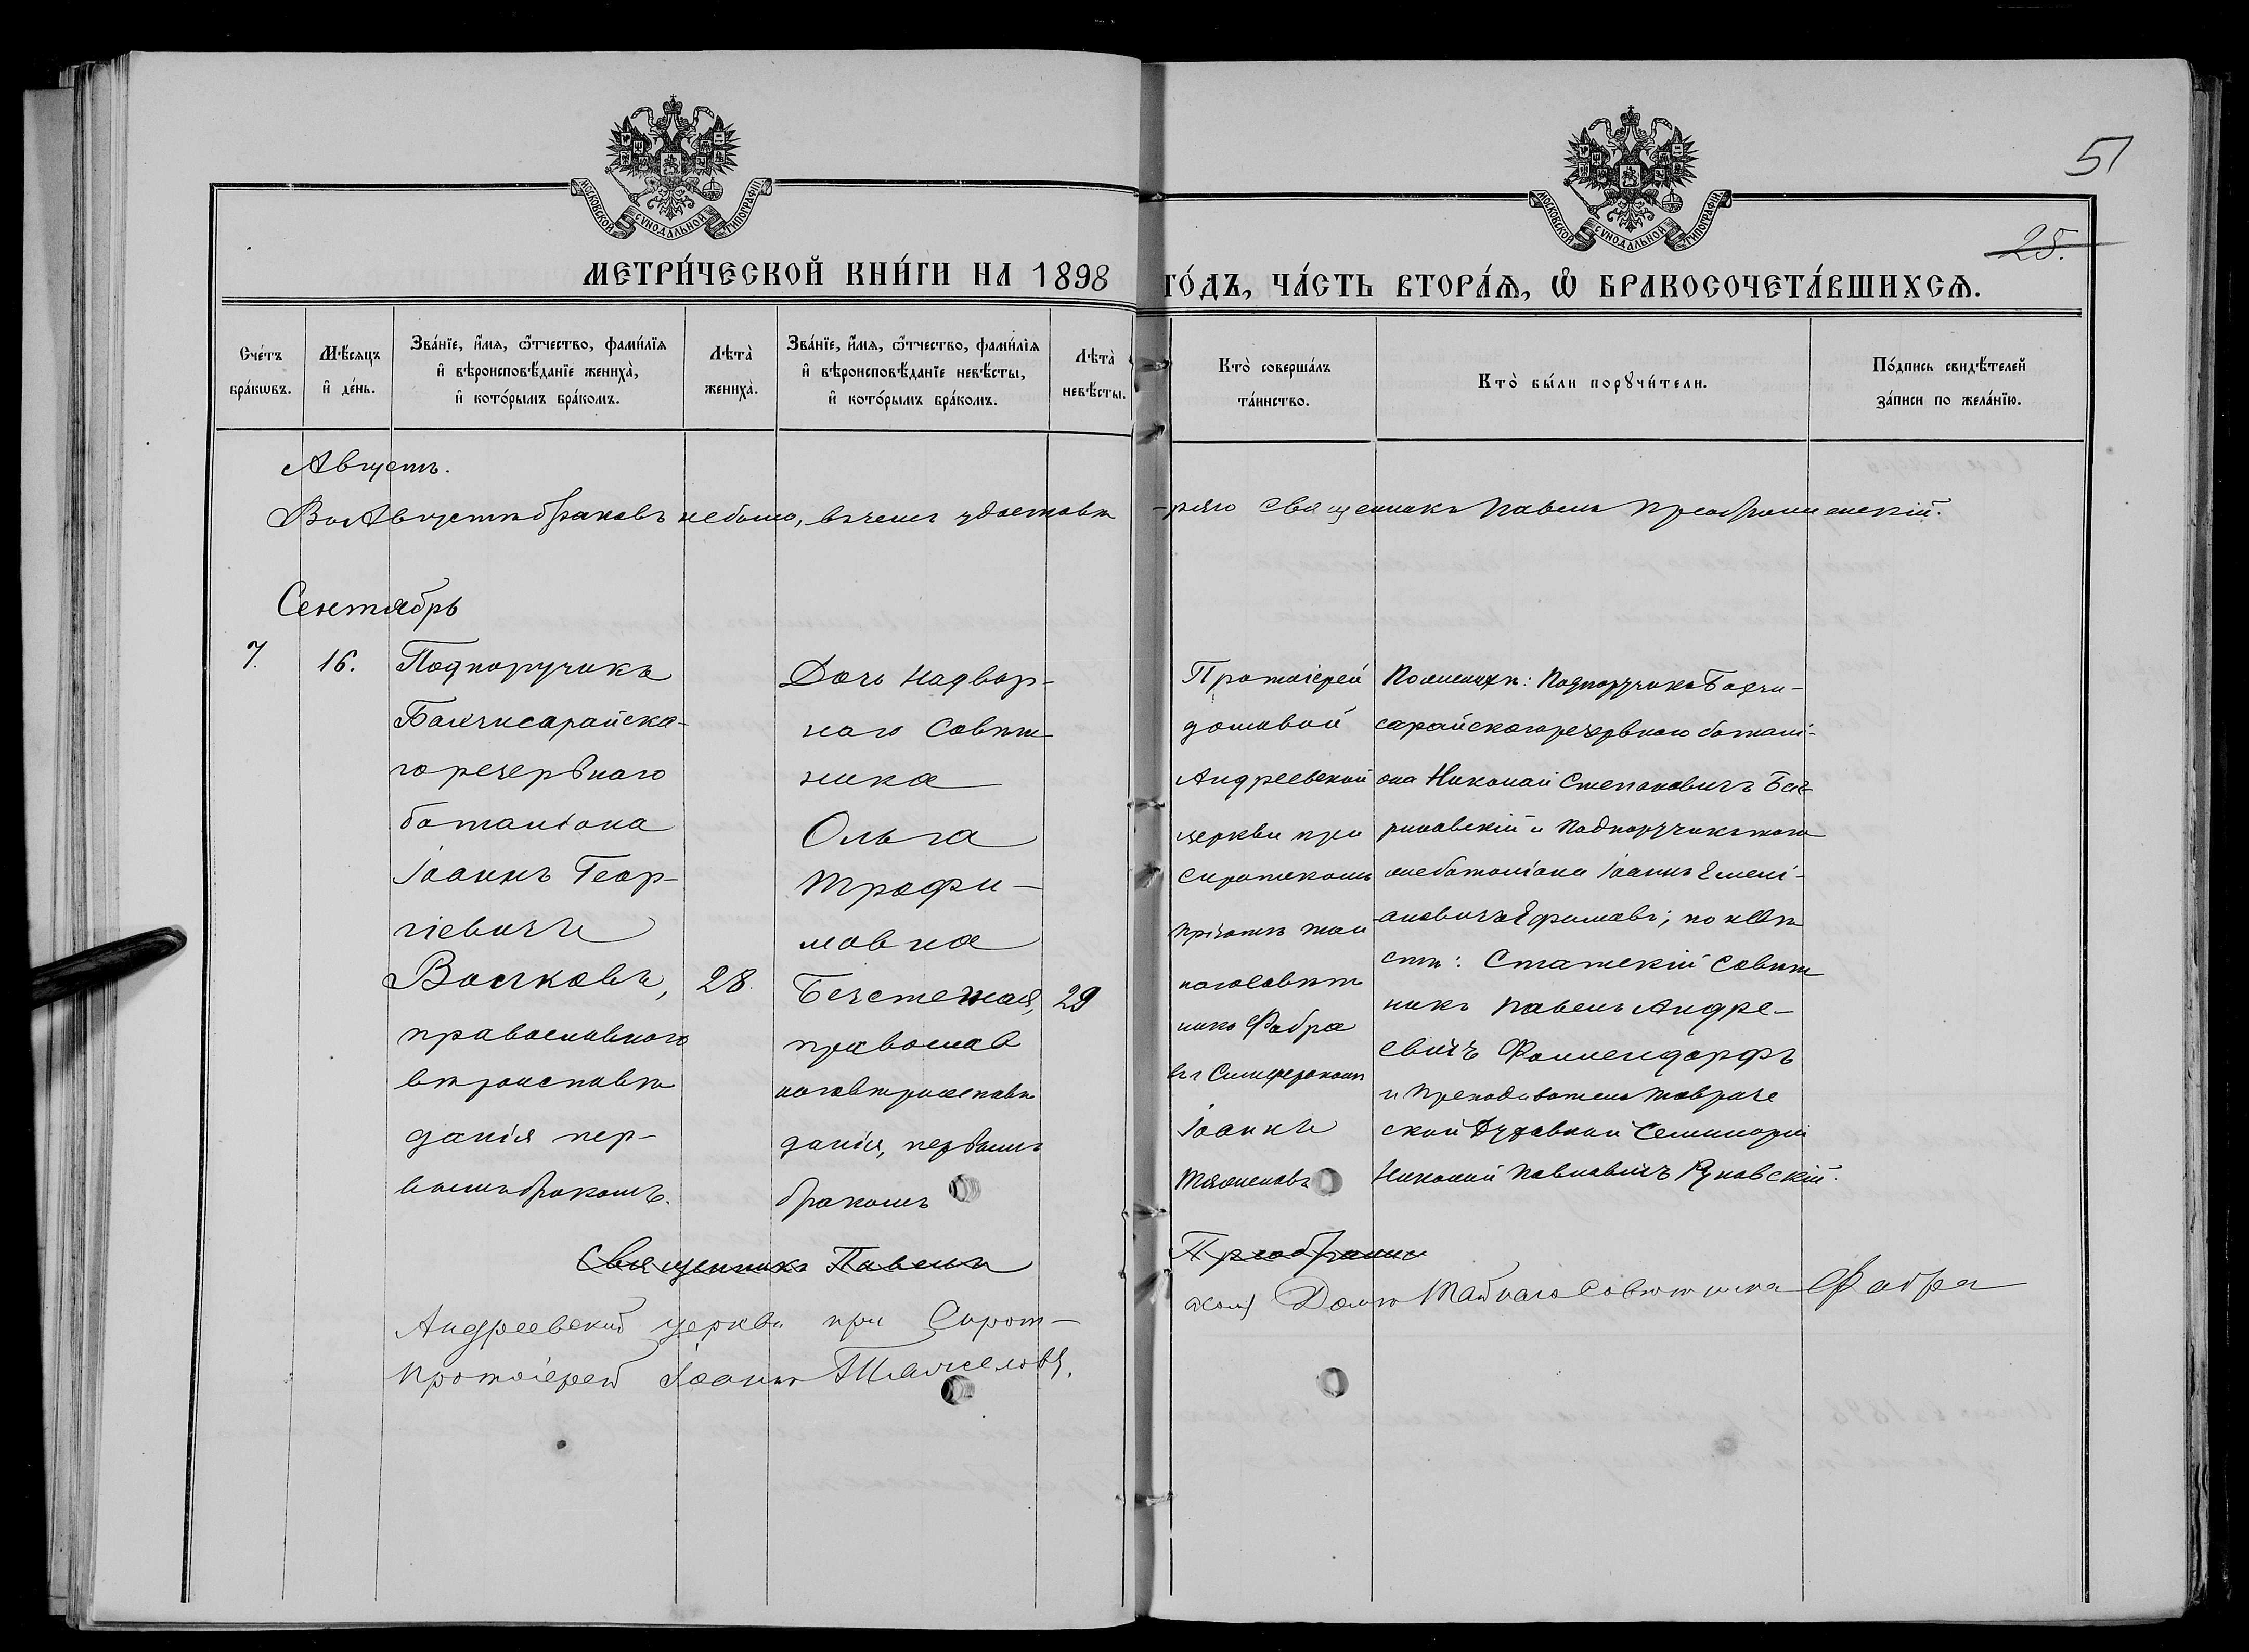 51
25.
МОСКОВСКОЙ СѴНОДАЛЬНОЙ ТИПОГРАФІИ
МОСКОВСКОЙ СѴНОДАЛЬНОЙ ТИПОГРАФІИ
МЕТРИ́ЧЕСКОЙ КНИ́ГИ НА 1898 ГО́ДЪ, ЧА́СТЬ ВТОРА́Ѧ, Ѡ҆ БРАКОСОЧЕТА́ВШИХСѦ.
Сче́тъ бра́кѡвъ.
Мѣ́сяцъ и҆ де́нь.
Зва́нїе, и҆́мѧ, ѻ҆́тчество, фами́лїѧ
и҆ вѣроисповѣ́данїе жениха̀,
и҆ кото́рымъ бра́комъ.
Лѣта̀ жениха̀.
Зва́нїе, и҆́мѧ, ѻ҆́тчество, фами́лїѧ
и҆ вѣроисповѣ́данїе невѣ́сты,
и҆ кото́рымъ бра́комъ.
Лѣта̀ невѣ́сты.
Кто̀ соверша́лъ та́инство.
Кто̀ бы́ли порꙋчи́тели.
По́дпись свидѣ́телей за́писи по жела́нїю.
Августъ.
Въ Августѣ браковъ небыло, въ чемъ удостовѣ-ряю Священникъ Павелъ Преображенскій.
Сентябрь
7.
16.
Подпоручикъ
Бахчисарайска-
го резервнаго
баталіона
Іоаннъ Геор-
гіевичъ
Волковъ,
православнаго
вѣроисповѣ
данія пер-
вымъ бракомъ.
28.
Дочь Надвор-
наго Совѣт
ника
Ольга
Трофи-
мовна
Безстежая,
православ
наговѣроисповѣ
данія, первымъ
бракомъ
29
Протоіерей
домовой
Андреевской
церкви при
Сиротскомъ
пріютѣ тай
наго Совѣт
ника Фабра
въ г Симферополѣ
Іоаннъ
Тяжеловъ
По женихѣ: Подпоручикъ Бахчи-
сарайскаго резервнаго баталі-
она Николай Степановичъ Баг-
риновскій и Подпоручикъ того
же баталіона Іоаннъ Емелі-
ановичъ Ефимовъ; по невѣ
стѣ: Статскій Совѣт
никъ Павелъ Андре-
евичъ Фоллендорфъ
и Преподаватель Тавриче
ской Духовной Семинаріи
Николай Павловичъ Руновскій.
Священникъ Павелъ Преображен
Андреевской церкви при Сирот-скомъ Домѣ Тайнаго Совѣтника Фабра
Протоіерей Іоаннъ Тяжеловъ.